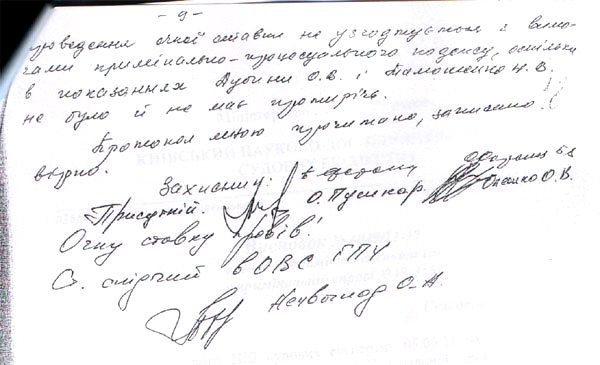 - 9 -
проведення очної ставки не узгоджується з вимо-
гами кримінально-процесуального кодексу, оскільки
в показаннях Дубини О.В. і Тимошенко Н.В.
не було й не має протиріч.
Протокол мною прочитано, записано
вірно.
Захисник:
Присутній. О. Пуснкар. О.В.
Очну ставку провів:
Ст. слідчий в ОВС ГПУ
Нечвоглод О.А.